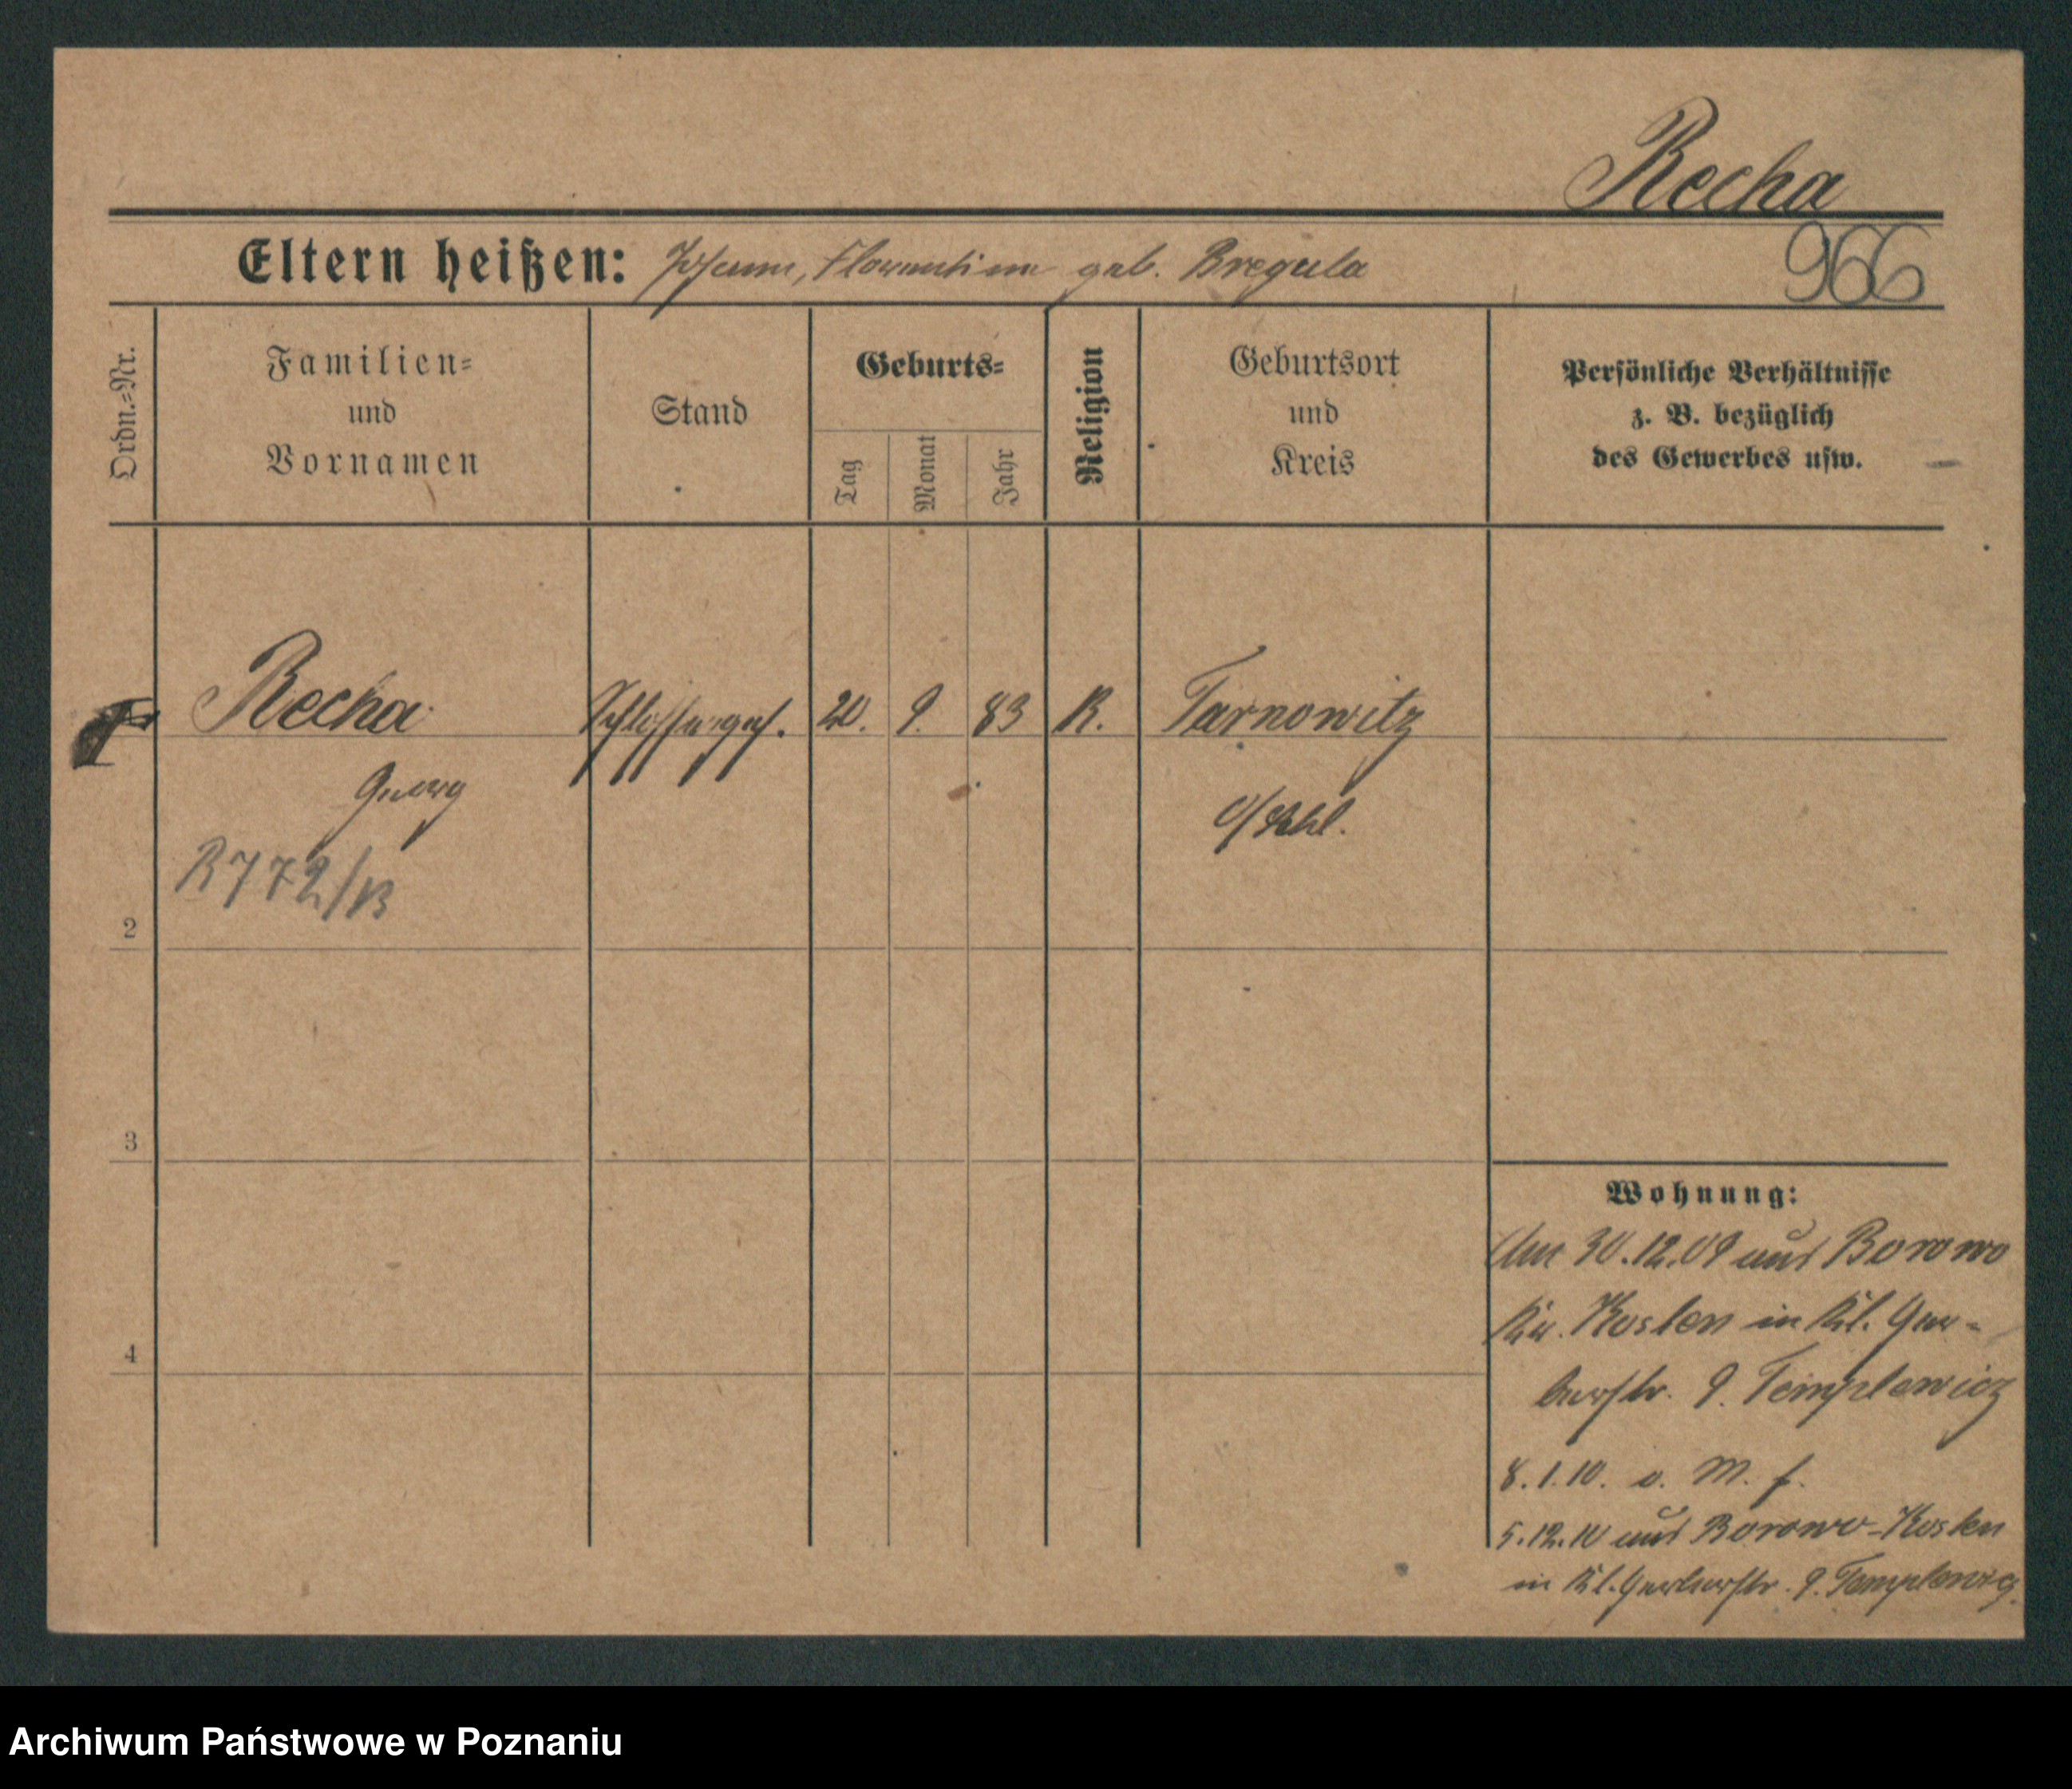 Recha
966
Eltern heißen: Johann, Florentine geb. Bregula
Ordn.=Nr.
Familien=
und
Vornamen
Stand
Geburts=
Tag
Monat
Jahr
Religion
Geburtsort
und
Kreis
Persönliche Verhältnisse
z. B. bezüglich
des Gewerbes usw.
1 Recha Schlosserges. 20. 9. 83 K. Tarnowitz
Georg
O/Schl.
R772/13
2
3
4
Wohnung:
Am 30.12.09 aus Borowo
Kr. Kosten in Kl. Ger-
berstr. 9. Templewicz
8.1.10. o. M. f.
5.12.10 aus Borowo-Kosten
in Kl. Gerberstr. 9. Templewicz
Archiwum Państwowe w Poznaniu